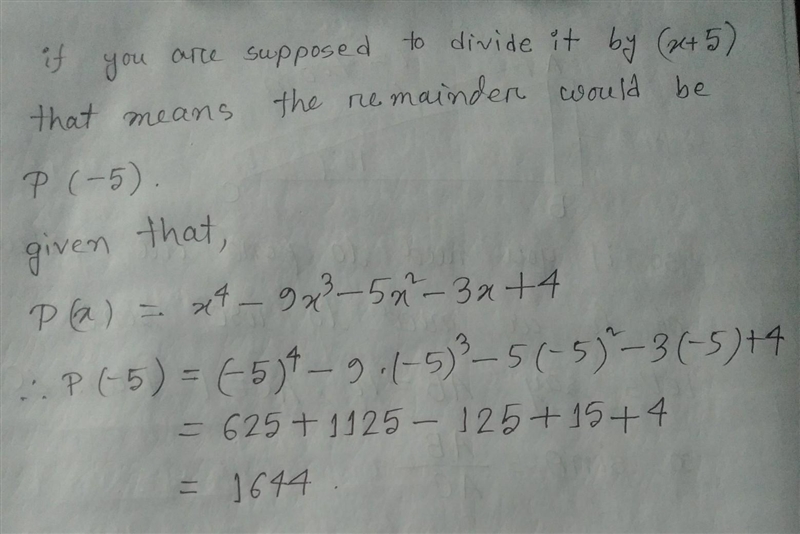 if you are supposed to divide it by (x+5)
that means the remainder would be
P (-5).
given that,
P(x) = x⁴ - 9x³ - 5x² - 3x + 4
∴ P(-5) = (-5)⁴ - 9·(-5)³ - 5(-5)² - 3(-5) + 4
= 625 + 1125 - 125 + 15 + 4
= 1644.